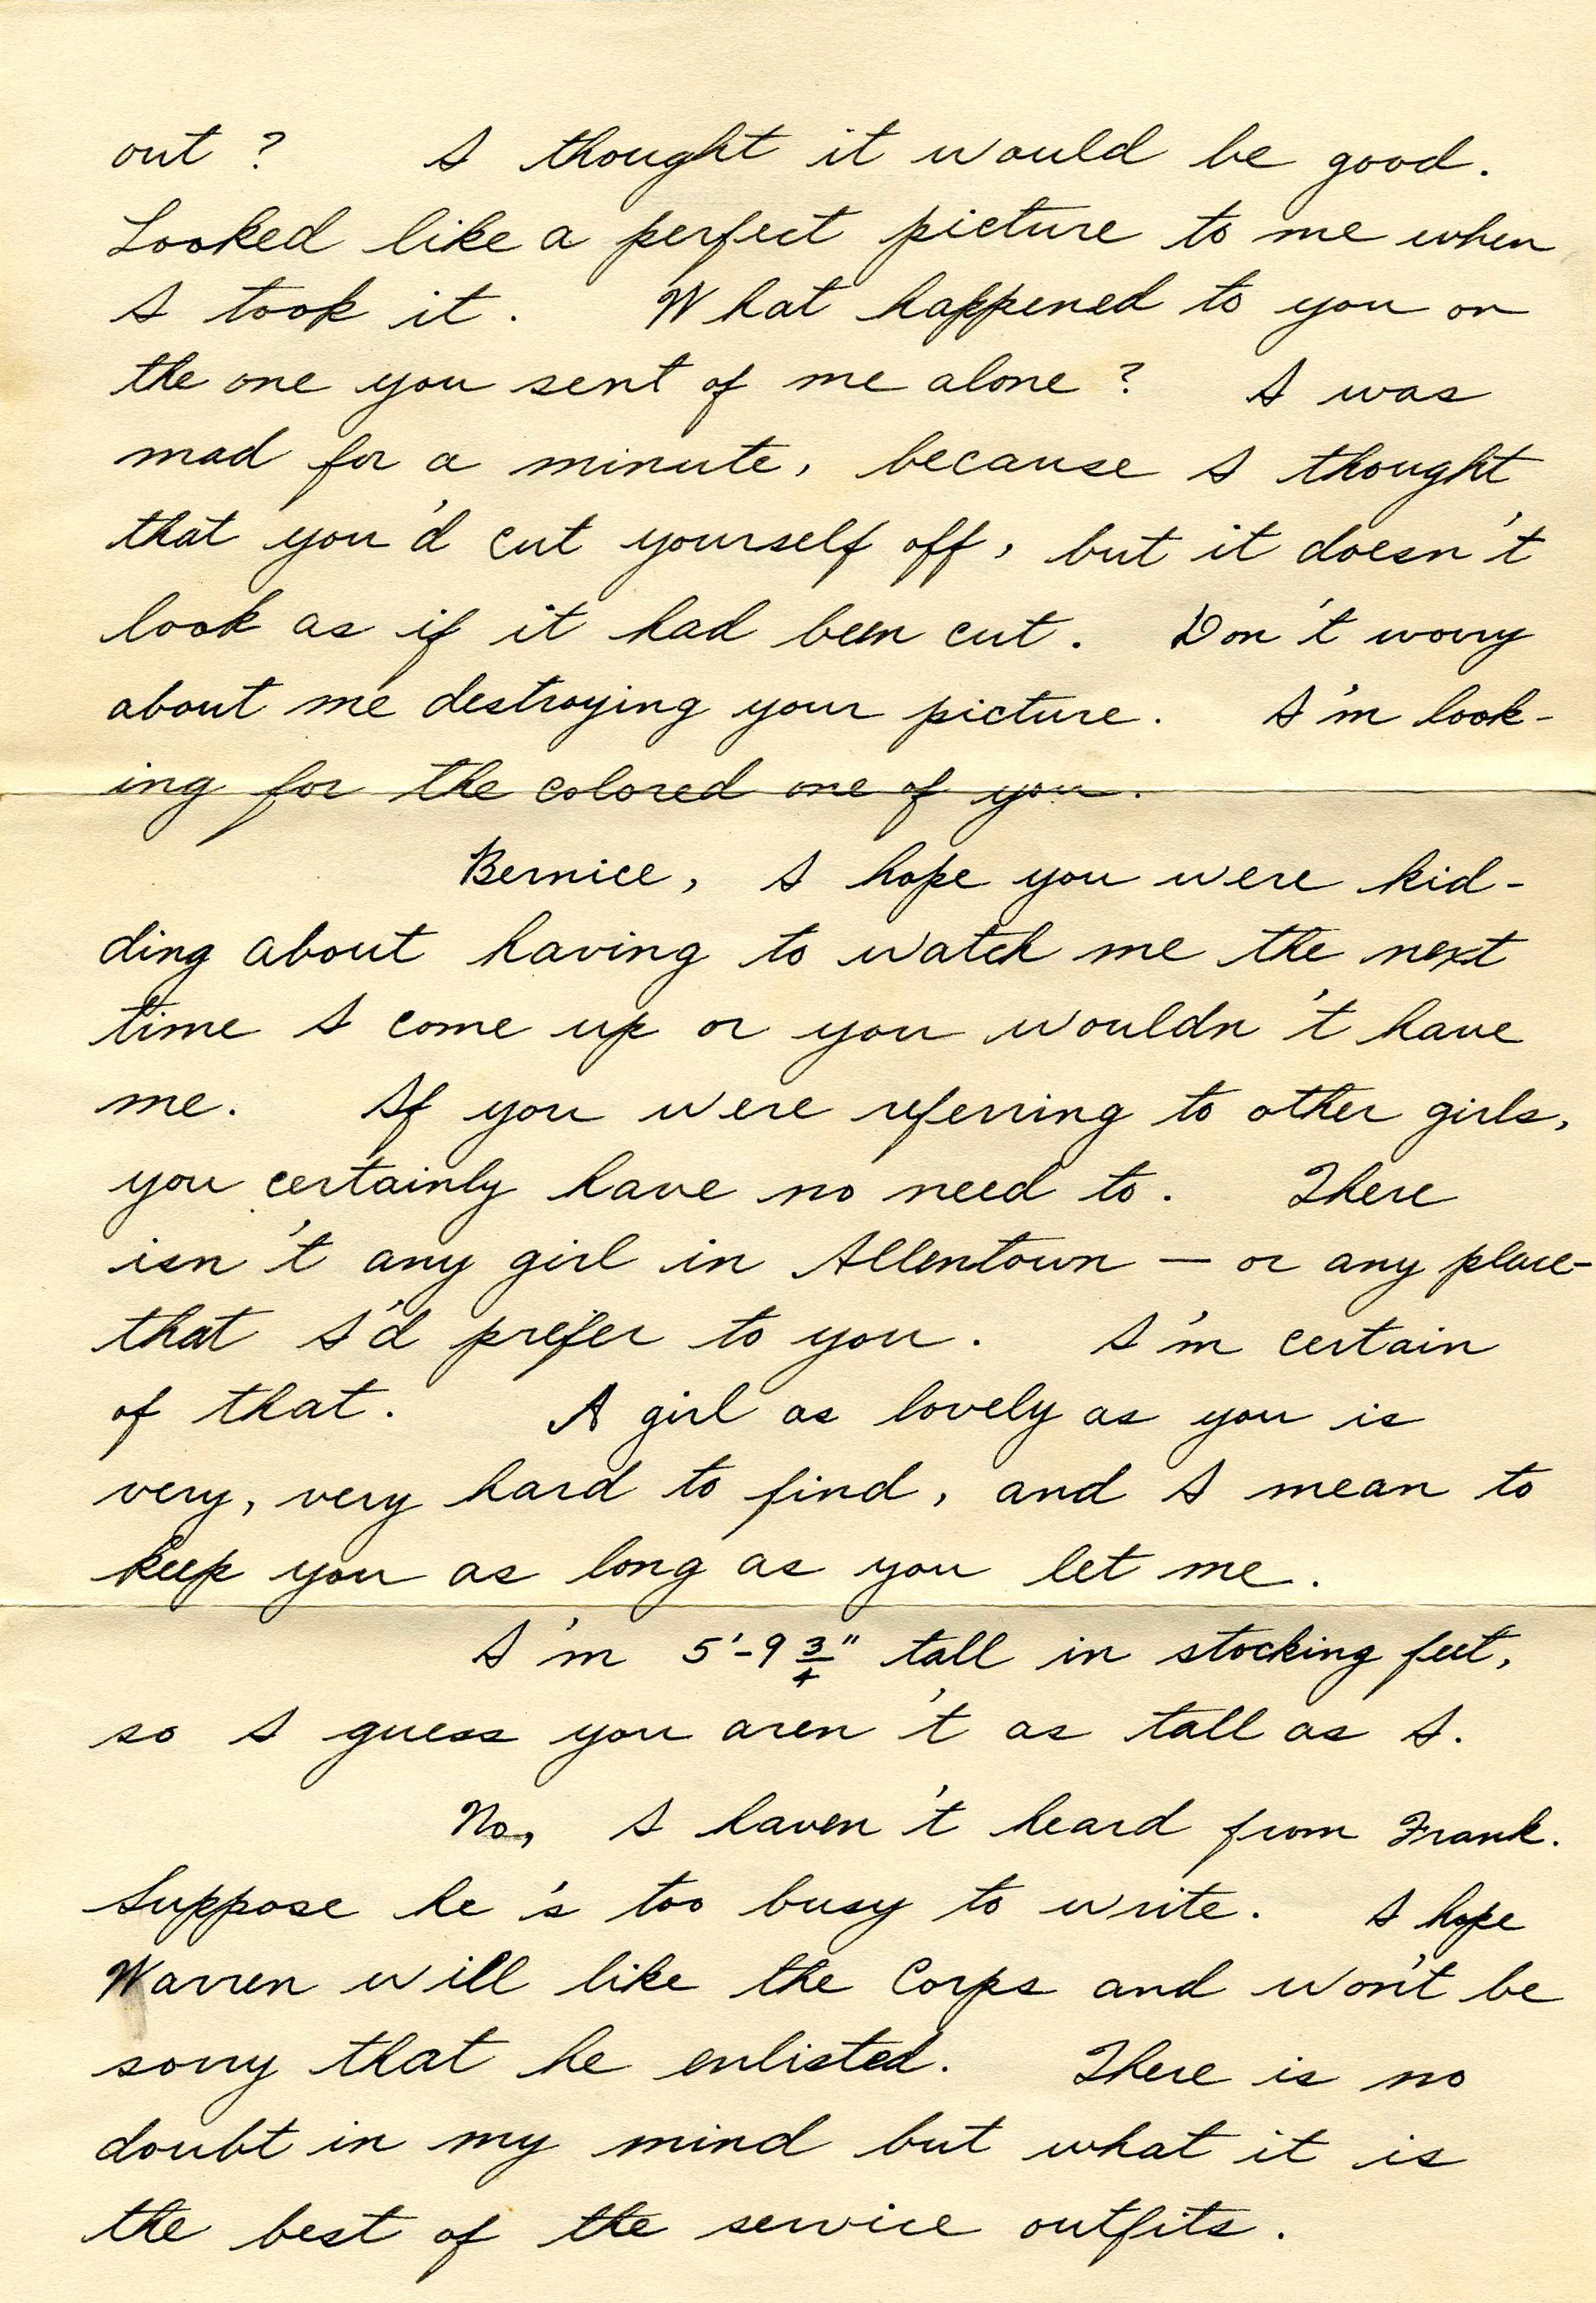 out? I thought it would be good.
Looked like a perfect picture to me when
I took it. What happened to you on
the one you sent of me alone? I was
mad for a minute, because I thought
that you'd cut yourself off, but it doesn't
look as if it had been cut. Don't worry
about me destroying your picture. I'm look-
ing for the colored one of you.
Bernice, I hope you were kid-
ding about having to watch me the next
time I come up or you wouldn't have
me. If you were referring to other girls,
you certainly have no need to. There
isn't any girl in Allentown — or any place-
that I'd prefer to you. I'm certain
of that. A girl as lovely as you is
very, very hard to find, and I mean to
keep you as long as you let me.
I'm 5'-9 3/4" tall in stocking feet,
so I guess you aren't as tall as I.
No, I haven't heard from Frank.
Suppose he's too busy to write. I hope
Warren will like the Corps and won't be
sorry that he enlisted. There is no
doubt in my mind but what it is
the best of the service outfits.